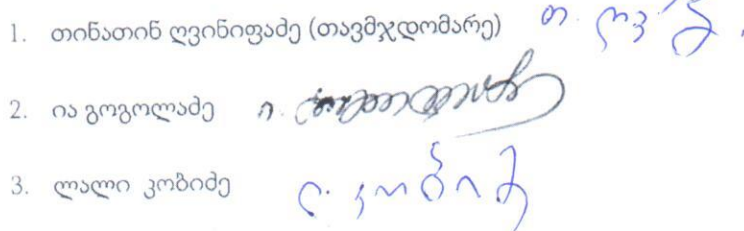 1. თინათინ ღვინიფაძე (თავმჯდომარე) თ. ღვ
2. ია გოგოლაძე ი.
3. ლალი კობიძე ლ. კობიძ